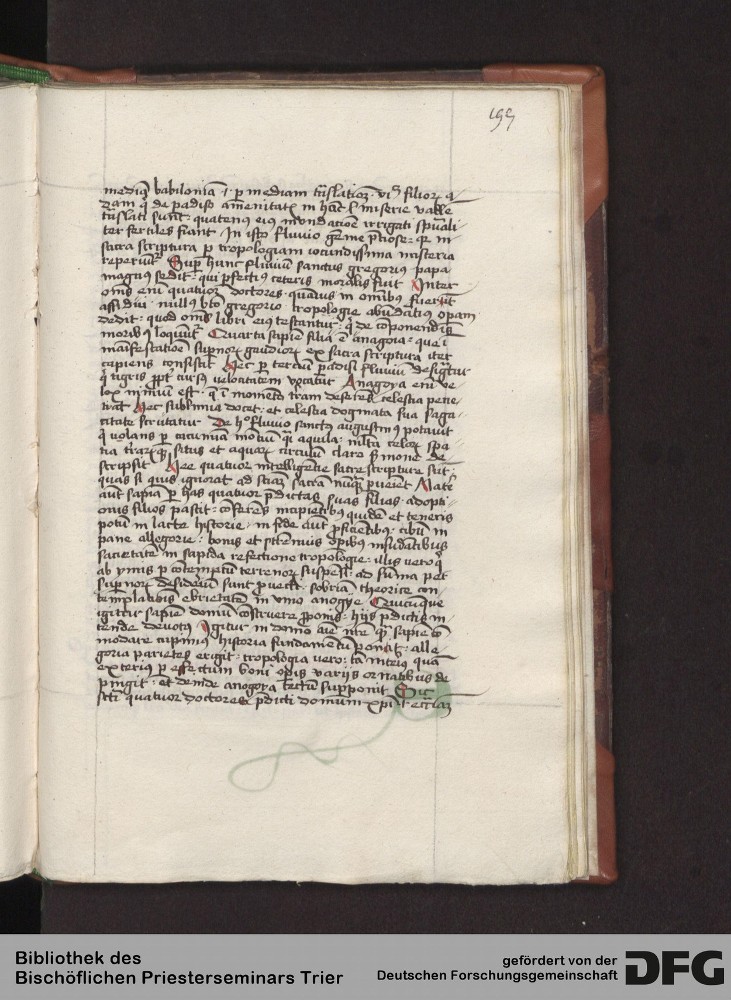 199
mediā babiloniā .i. p mediam tͬnslationē. vl filior q̄
dam q̄ de padiso amenitatis in hāc miserie valle
tͬnslati sunt: quatenus eius inundatiōe irrigati spūali
ter fertiles fiant In isto fluvio gēme p̄ciose: qr in
sacra scriptura p tropologiam iocundissima misteria
reperiunt̄ Sup hunc fluuiū sanctus gregorius papa
magnus sedit: qui p̄fectius ceteris moralis fuit Inter
om̄s eni quatuor doctores quāuis in om̄ibus fuerint
assidui. nullus bt̄o gregorio tropologie abundātius opam
dedit: quod om̄s libri eius testantur: q̄ de cōponendis
moribus loquunt̄ Quarta sapiē filia ē anagoia: que i
manifestatiōe supnor gaudior ex sacra scriptura iter
capiens consistit Hec p terciū padisi fluuiū designatur
q̄ tigris ppt̄ cursus velocitatem vocatur Anagoya eni ve
lox nimiū est. q̄ i momēto tram deserēs celestia pene
trat Hec sublimia docet: et celestia dogmata sua saga
citate scrutatur De hoc fluvio sanctus augustinus potauit
q̄ volans p cacumīa motiū q̄i aquila: mlta celor spa
tia t̄rarq̄ situs et aquar circulū claro s̄mone de
scripsit Hee quatuor intelligentie sacre scripture sūt:
quas si quis ignorat ad sciaz sacrā nūq̄ pueiet Mater
aut sapīa p has quatuor p̄dictas suas filias adopti
onis filios pascit: cōferēs incipiētibus quidē et teneris
potū in lacte historie. in fide aūt p̄ficiētibus cibū in
pane allegorie: bonis et strēnuis opibus insudātibus
sacietatē in sapida refectione tropologie: illis vero q̄
ab ymis p cōtemptū terrenor suspēsi: ad sūma per
supnor desideriū sunt puecti. sobriā theorice con
templatiōis ebrietatē in vino anogye Quicūque
igitur sapiē domū cōstruere pponis: hijs p̄dictis in
tende deuotus Igitur in domo aīe nr̄e q̄ sapiē cō
modare cupimus historia fundamētū ponit: alle
goria parietes erigit: tropologia vero: tā interius quā
exterius p effectum boni opis varijs ornatibus de
pingit: et deinde anogoya tectū supponit Sic
scti quatuor doctores p̄dicti domum xp̄i .i. ecciaz
Bibliothek des
Bischöflichen Priesterseminars Trier
gefördert von der
Deutschen Forschungsgemeinschaft
DFG